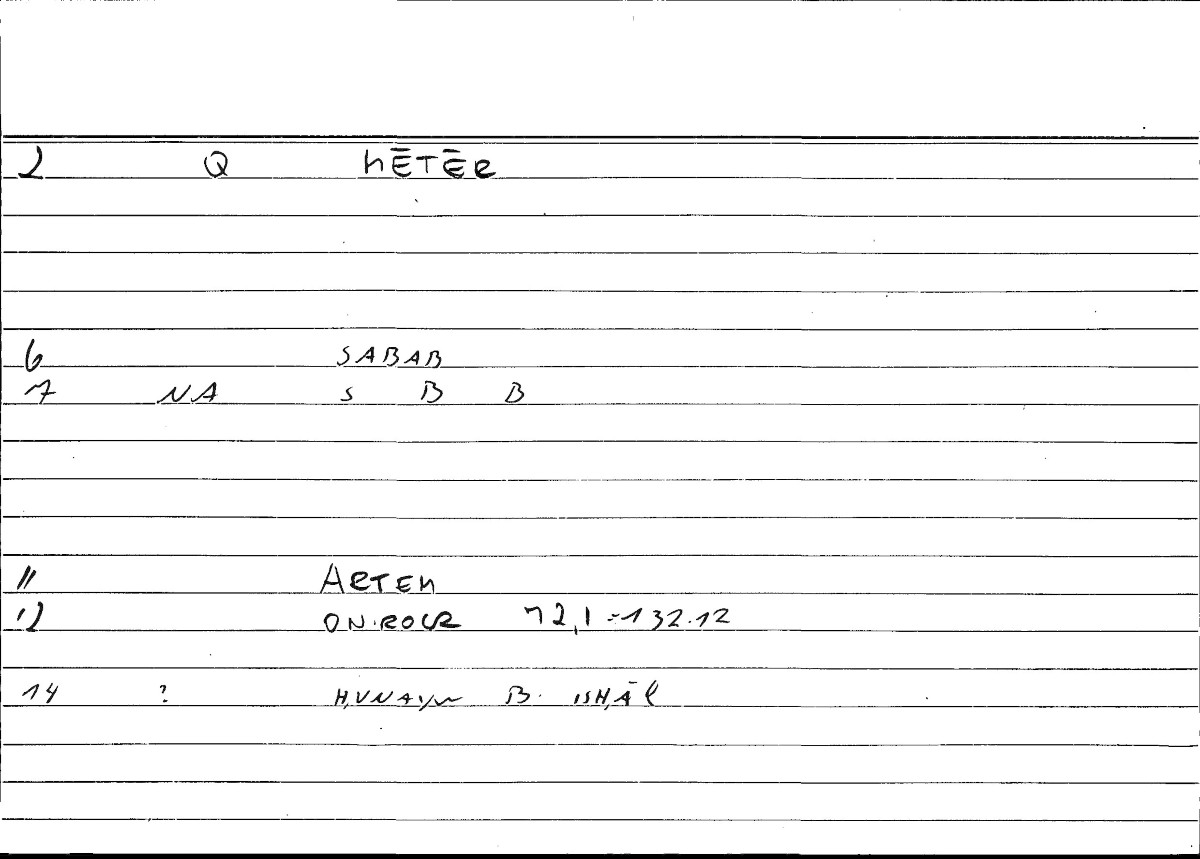 2 Q MĒTĒR
6 SABAB
7 NA S B B
11 ARTEM
12 ONIROCR 72,1 = 132.12
14 ? ḤUNAYN B. ISḤĀQ